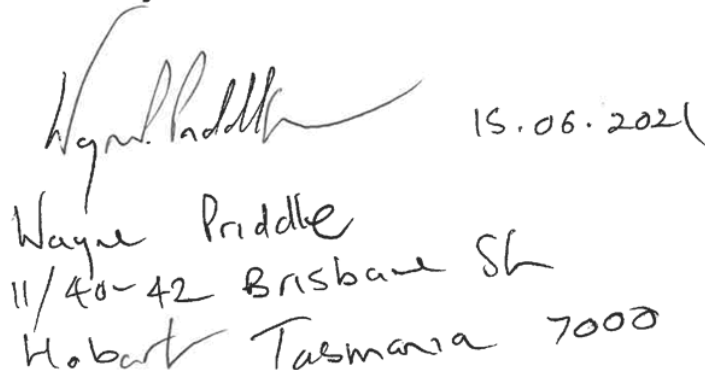 Wayne Priddle 15.06.2021
Wayne Priddle
11/40-42 Brisbane St
Hobart Tasmania 7000